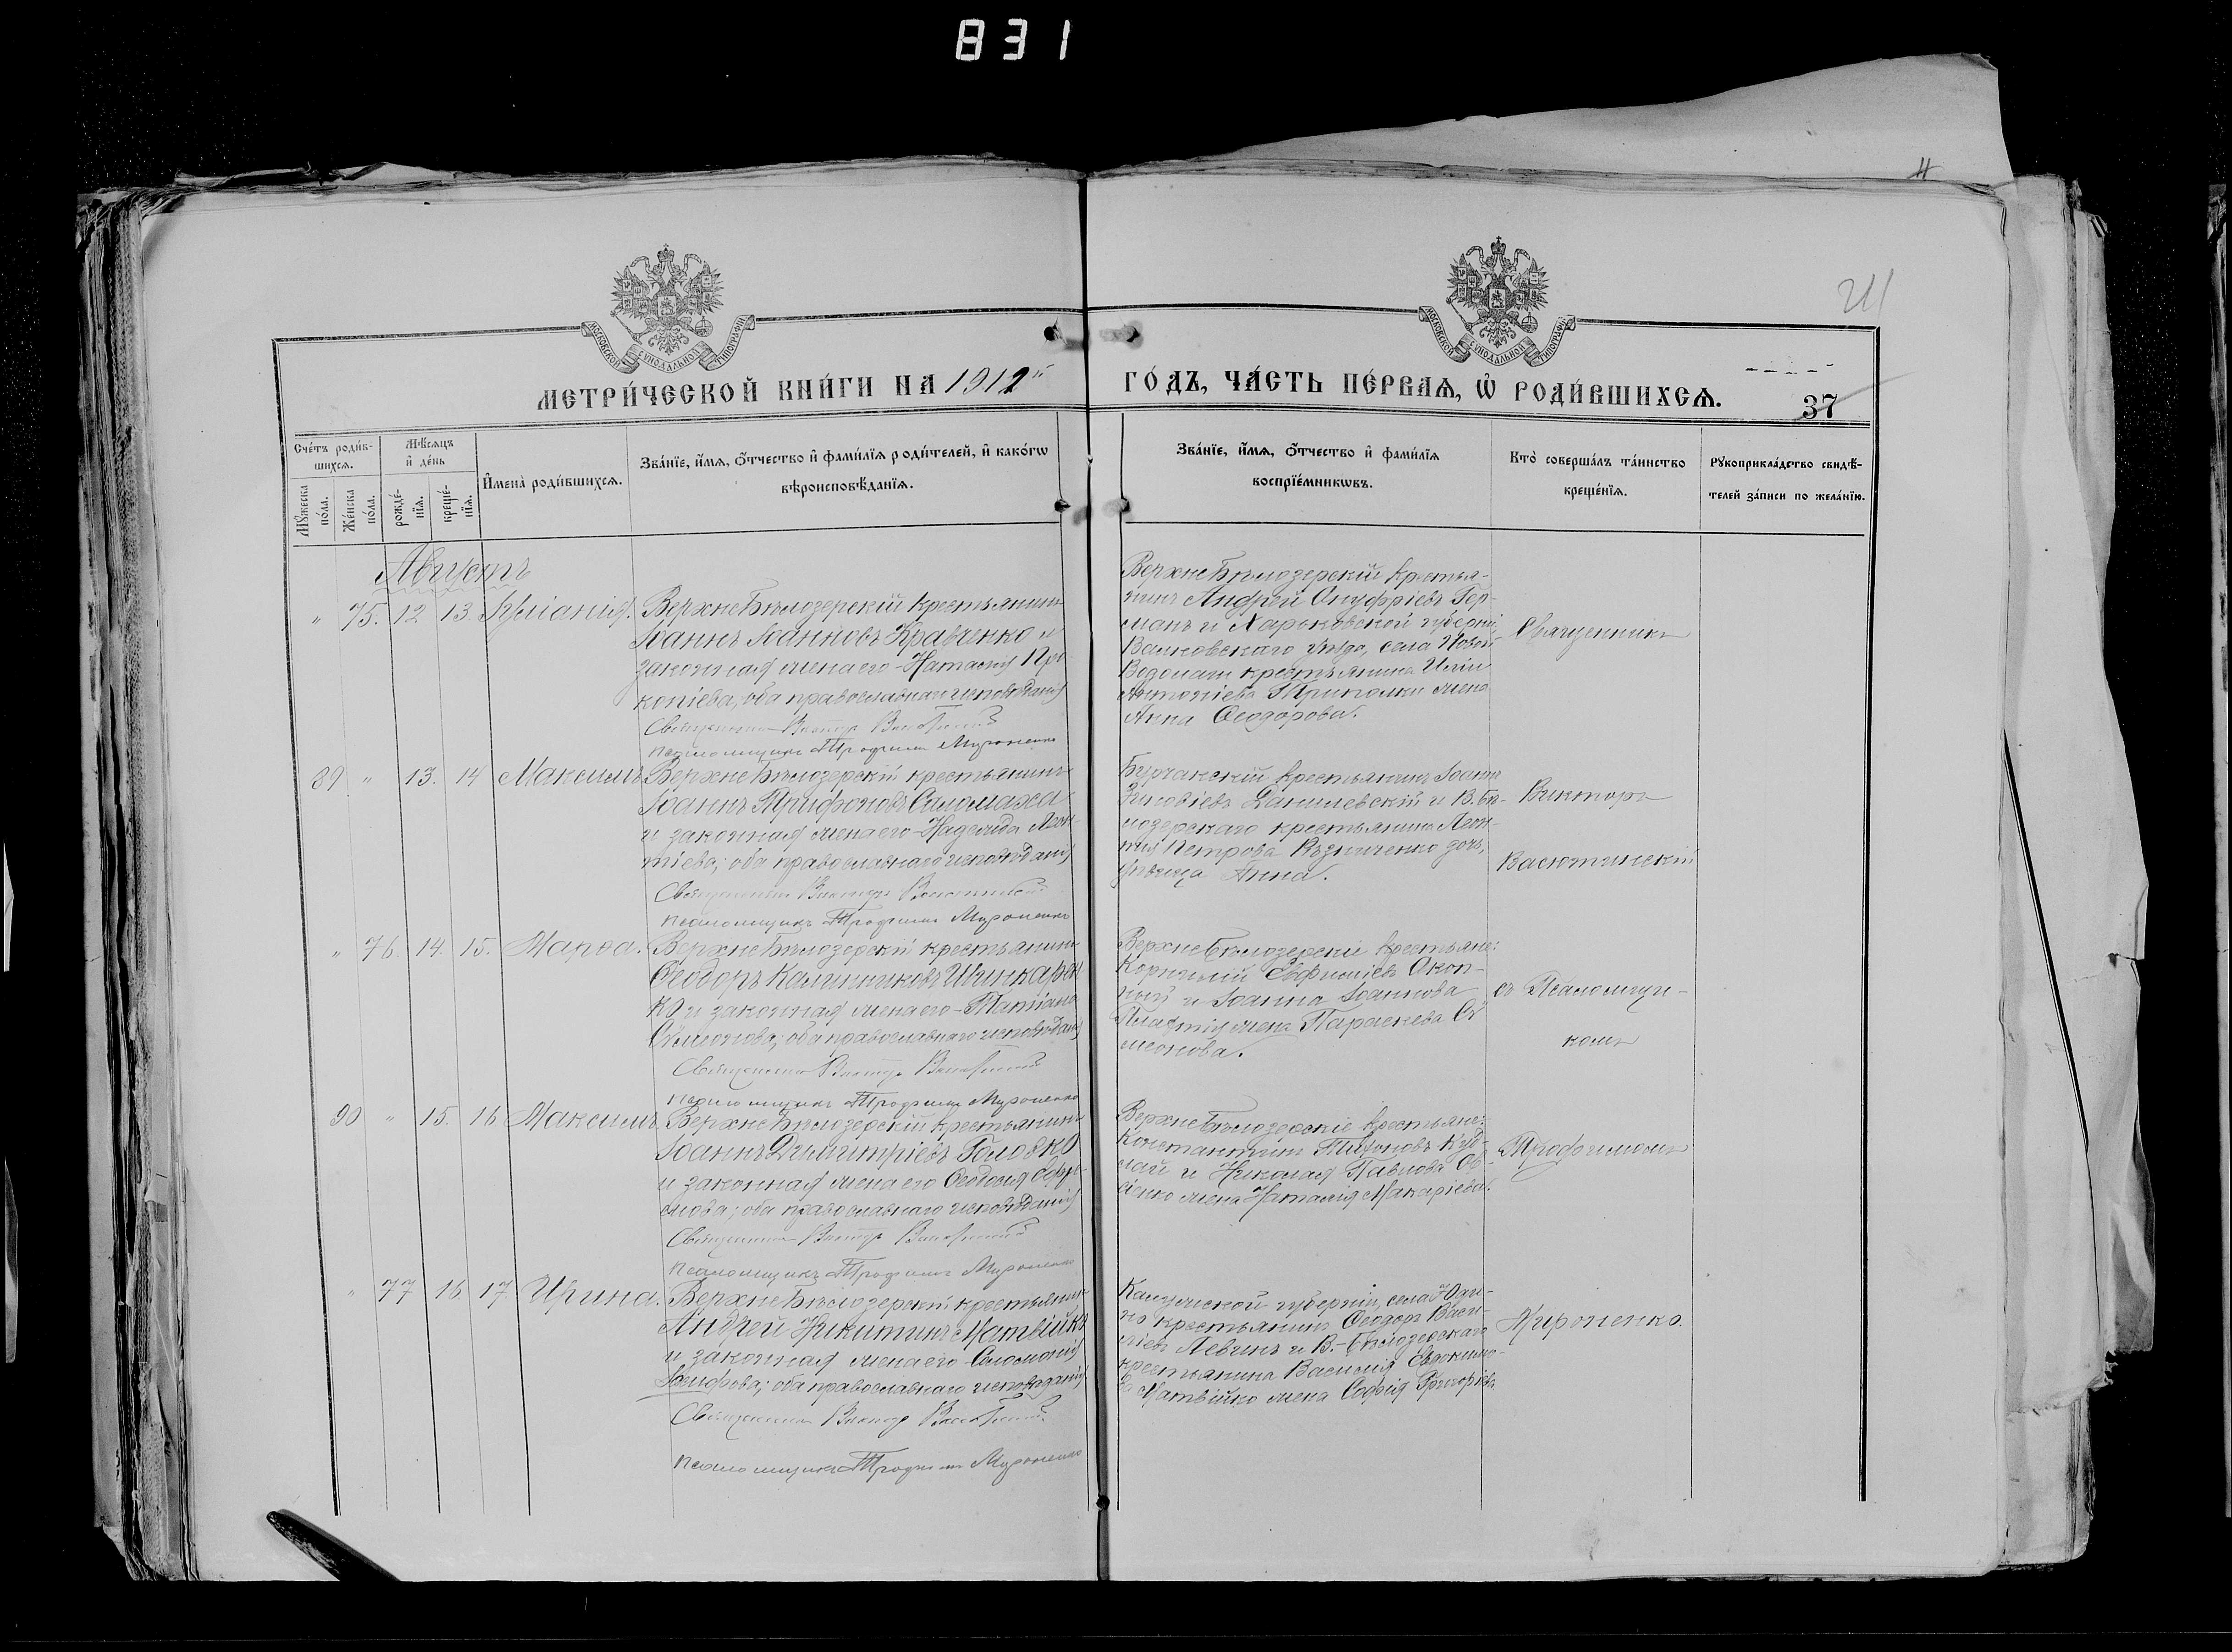 831
МОСКОВСКОЙ СѴНОДАЛЬНОЙ ТИПОГРАФІИ
МОСКОВСКОЙ СѴНОДАЛЬНОЙ ТИПОГРАФІИ
МЕТРИ́ЧЕСКОЙ КНИ́ГИ НА 1912й
ГО́ДЪ, ЧА́СТЬ ПЕ́РВАѦ, Ѿ РОДИ́ВШИХСѦ.
37
Сче́тъ роди́в-
шихсѧ.
Мꙋ́жеска
по́ла.
Же́нска
по́ла.
Мѣ́сѧцъ
и҆ де́нь
рожде́-
нїѧ.
креще́-
нїѧ.
И҆мена̀ роди́вшихсѧ.
Зва́нїе, и҆́мѧ, ѻ҆́тчество и҆ фами́лїѧ роди́телей, и҆ како́гѡ
вѣроисповѣ́данїѧ.
Зва́нїе, и҆́мѧ, ѻ҆́тчество и҆ фами́лїѧ
воспрїе́мникѡвъ.
Кто̀ соверша́лъ та́инство
креще́нїѧ.
Рꙋкоприкла́дство свидѣ́-
телей за́писи по жела́нїю.
Августъ
" 75. 12 13
ВерхнеБѣлозерскій крестьянинъ
Іоаннъ Іоанновъ Кравченко и
законная жена его Наталія Про-
копіева, оба православнаго исповѣданія
Священникъ Викторъ Васютинскій
Псаломщикъ Трофимъ Мироненко
ВерхнеБѣлозерскій крестья-
нинъ Андрей Онуфріевъ Гер-
манъ и Харьковской губерніи,
Валковскаго уѣзда, села Новой
Водолаги крестьянина Иліи
Антоніева жена
Анна Ѳеодорова.
Священникъ
89 " 13. 14 Максимъ
ВерхнеБѣлозерскій крестьянинъ
Іоаннъ Трифоновъ Саломаха
и законная жена его Надежда Леон-
тіева; оба православнаго исповѣданія
Священникъ Викторъ Васютинскій
Псаломщикъ Трофимъ Мироненко
Бурчакскій крестьянинъ Іоаннъ
Зиновіевъ Данилевскій и В. Бѣ-
лозерскаго крестьянина Леон-
тія Петрова дочь,
дѣвица Анна.
Викторъ
Васютинскій
" 76. 14. 15. Марѳа.
ВерхнеБѣлозерскій крестьянинъ
Ѳеодоръ Каллиниковъ Шинкарен-
ко и законная жена его Татіана
Сѵмеонова; оба православнаго исповѣданія
Священникъ Викторъ Васютинскій
Псаломщикъ Трофимъ Мироненко
ВерхнеБѣлозерскіе крестьяне:
Корнилій Евфиміевъ Окоп-
ный и Іоанна Іоаннова
жена Параскева Сѵ-
меонова.
съ Псаломщи-
комъ
90 " 15. 16 Максимъ
ВерхнеБѣлозерскій крестьянинъ
Іоаннъ Димитріевъ Головко
и законная жена его Ѳеодосія Ефре-
мова; оба православнаго исповѣданія
Священникъ Викторъ Васютинскій
Псаломщикъ Трофимъ Мироненко
ВерхнеБѣлозерскіе крестьяне:
Константинъ
и Николая Павлова Ов-
сіенко жена Наталія Макаріева.
Трофимомъ
" 77 16 17. Ирина.
ВерхнеБѣлозерскій крестьянинъ
Андрей Никитинъ Матвійко
и законная жена его Соломонія
оба православнаго исповѣданія
Священникъ Викторъ Васютинскій
Псаломщикъ Трофимъ Мироненко
Калужской губерніи, села
крестьянинъ Ѳеодоръ Васи-
ліевъ Левинъ и В.-Бѣлозерскаго
крестьянина Василія Евдокимо-
ва Матвійко жена Софія Григоріева
Мироненко.